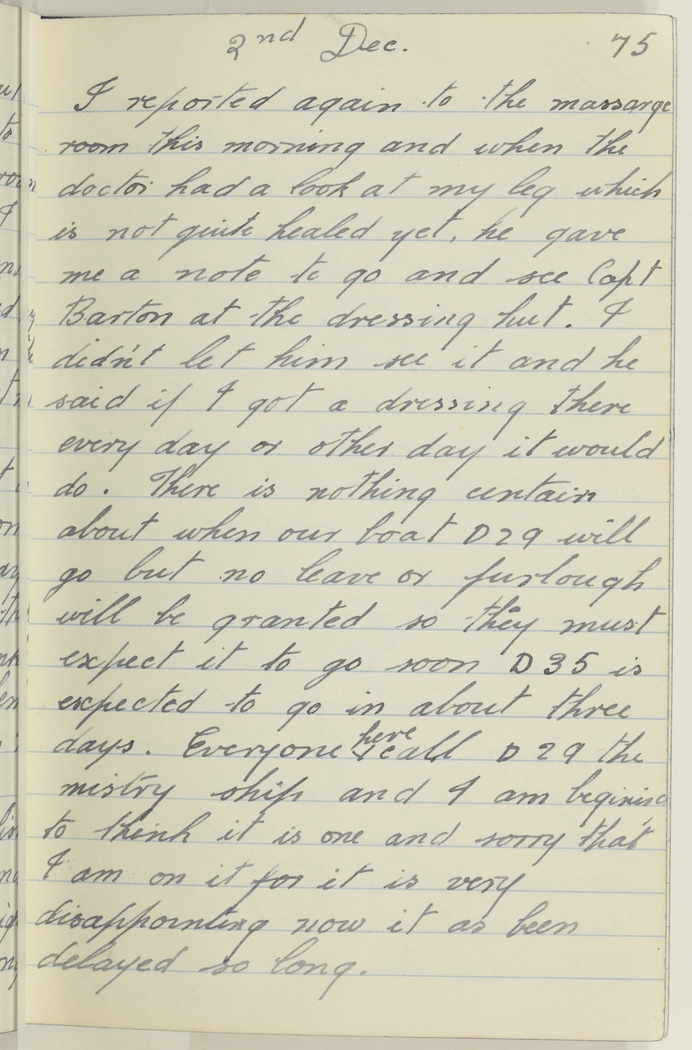 2nd Dec. 75
I reported again to the massarge
room this morning and when the
doctor had a look at my leg which
is not quite healed yet, he gave
me a note to go and see Capt
Barton at the dressing hut. I
didn't let him see it and he
said if I got a dressing there
every day or other day it would
do. There is nothing centain
about when our boat D29 will
go but no leave or furlough
will be granted so they must
expect it to go soon D35 is
expected to go in about three
days. Everyone here call D29 the
mistry ship and I am begining
to think it is one and sorry that
I am on it for it is very
disappointing now it as been
delayed so long.